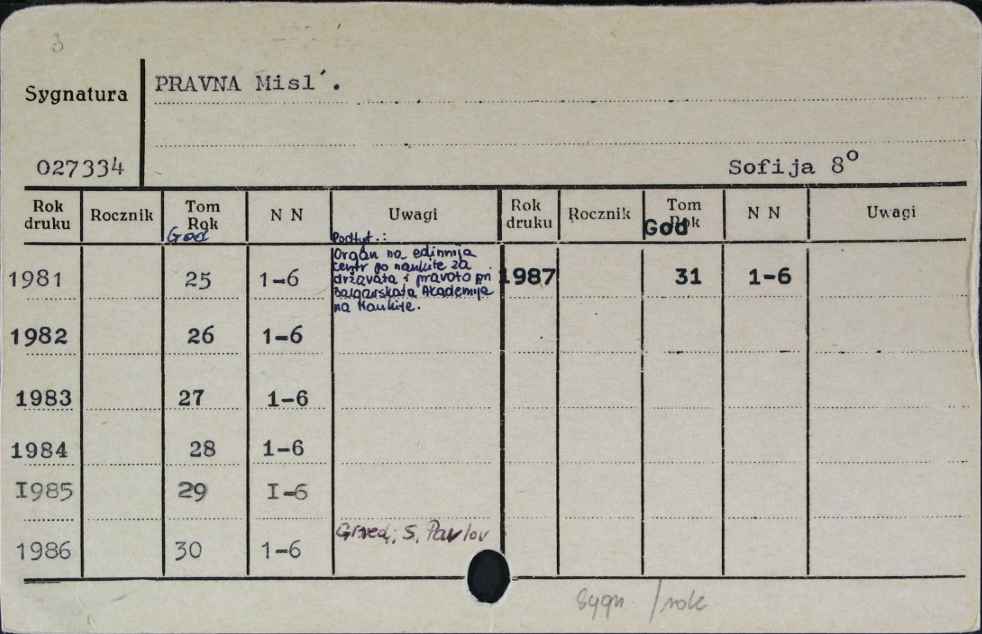 3
Sygnatura
PRAVNA Misl´.
027334
Sofija 8º
Rok druku Rocznik Tom Rok N N Uwagi Rok druku Rocznik Tom Rok N N Uwagi
God God
1981 25 1-6 1987 31 1-6
Podtyt.:
Organ na edinnija
centr po naukite za
državata i pravoto pri
Bălgarskata Akademija
na Naukite.
1982 26 1-6
1983 27 1-6
1984 28 1-6
I985 29 I-6
1986 30 1-6
S. Pavlov
Sygn. /rok